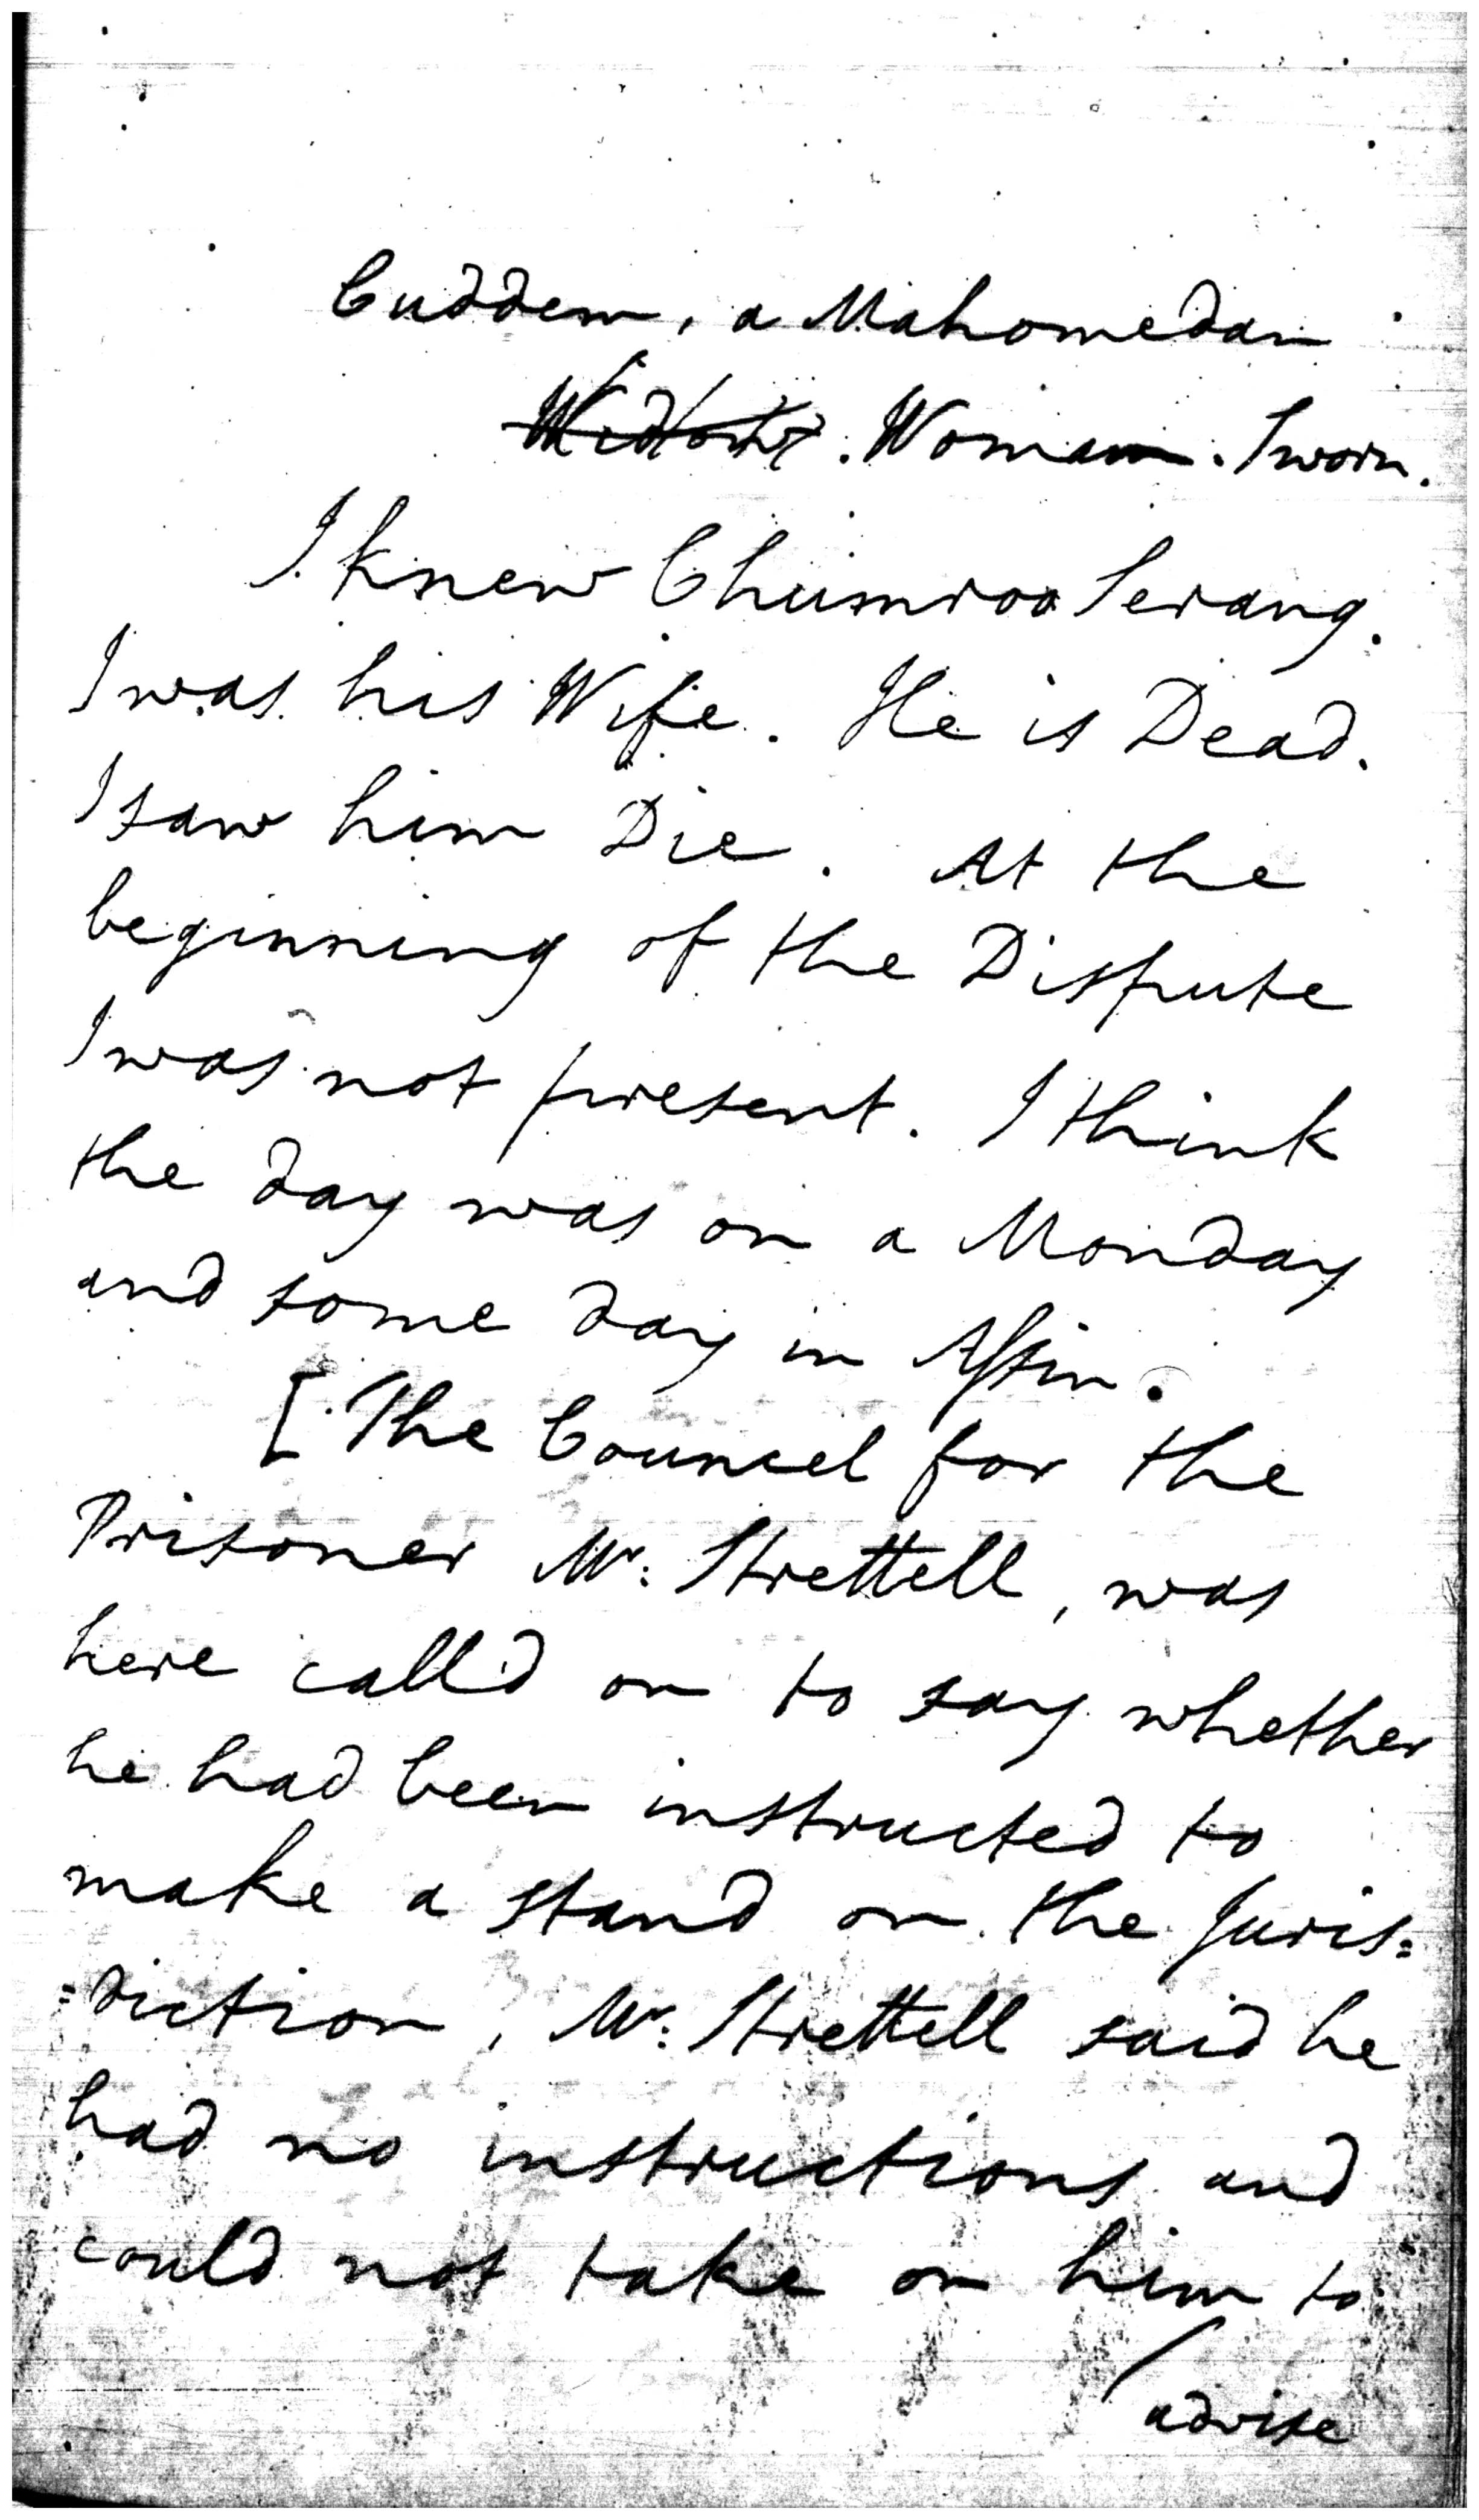 Cuddem, a Mahomedan
Woman. Sworn.
I knew Chumroo Serang.
I was his Wife. He is Dead.
I saw him Die. At the
beginning of the Dispute
I was not present. I think
the day was on a Monday
and some day in Assin.
[The Council for the
Prisoner Mr: Strettell, was
here call'd on to say whether
he had been instructed to
make a stand on the Juris=
=diction, Mr: Strettell said he
had no instructions and
could not take on him to
advise